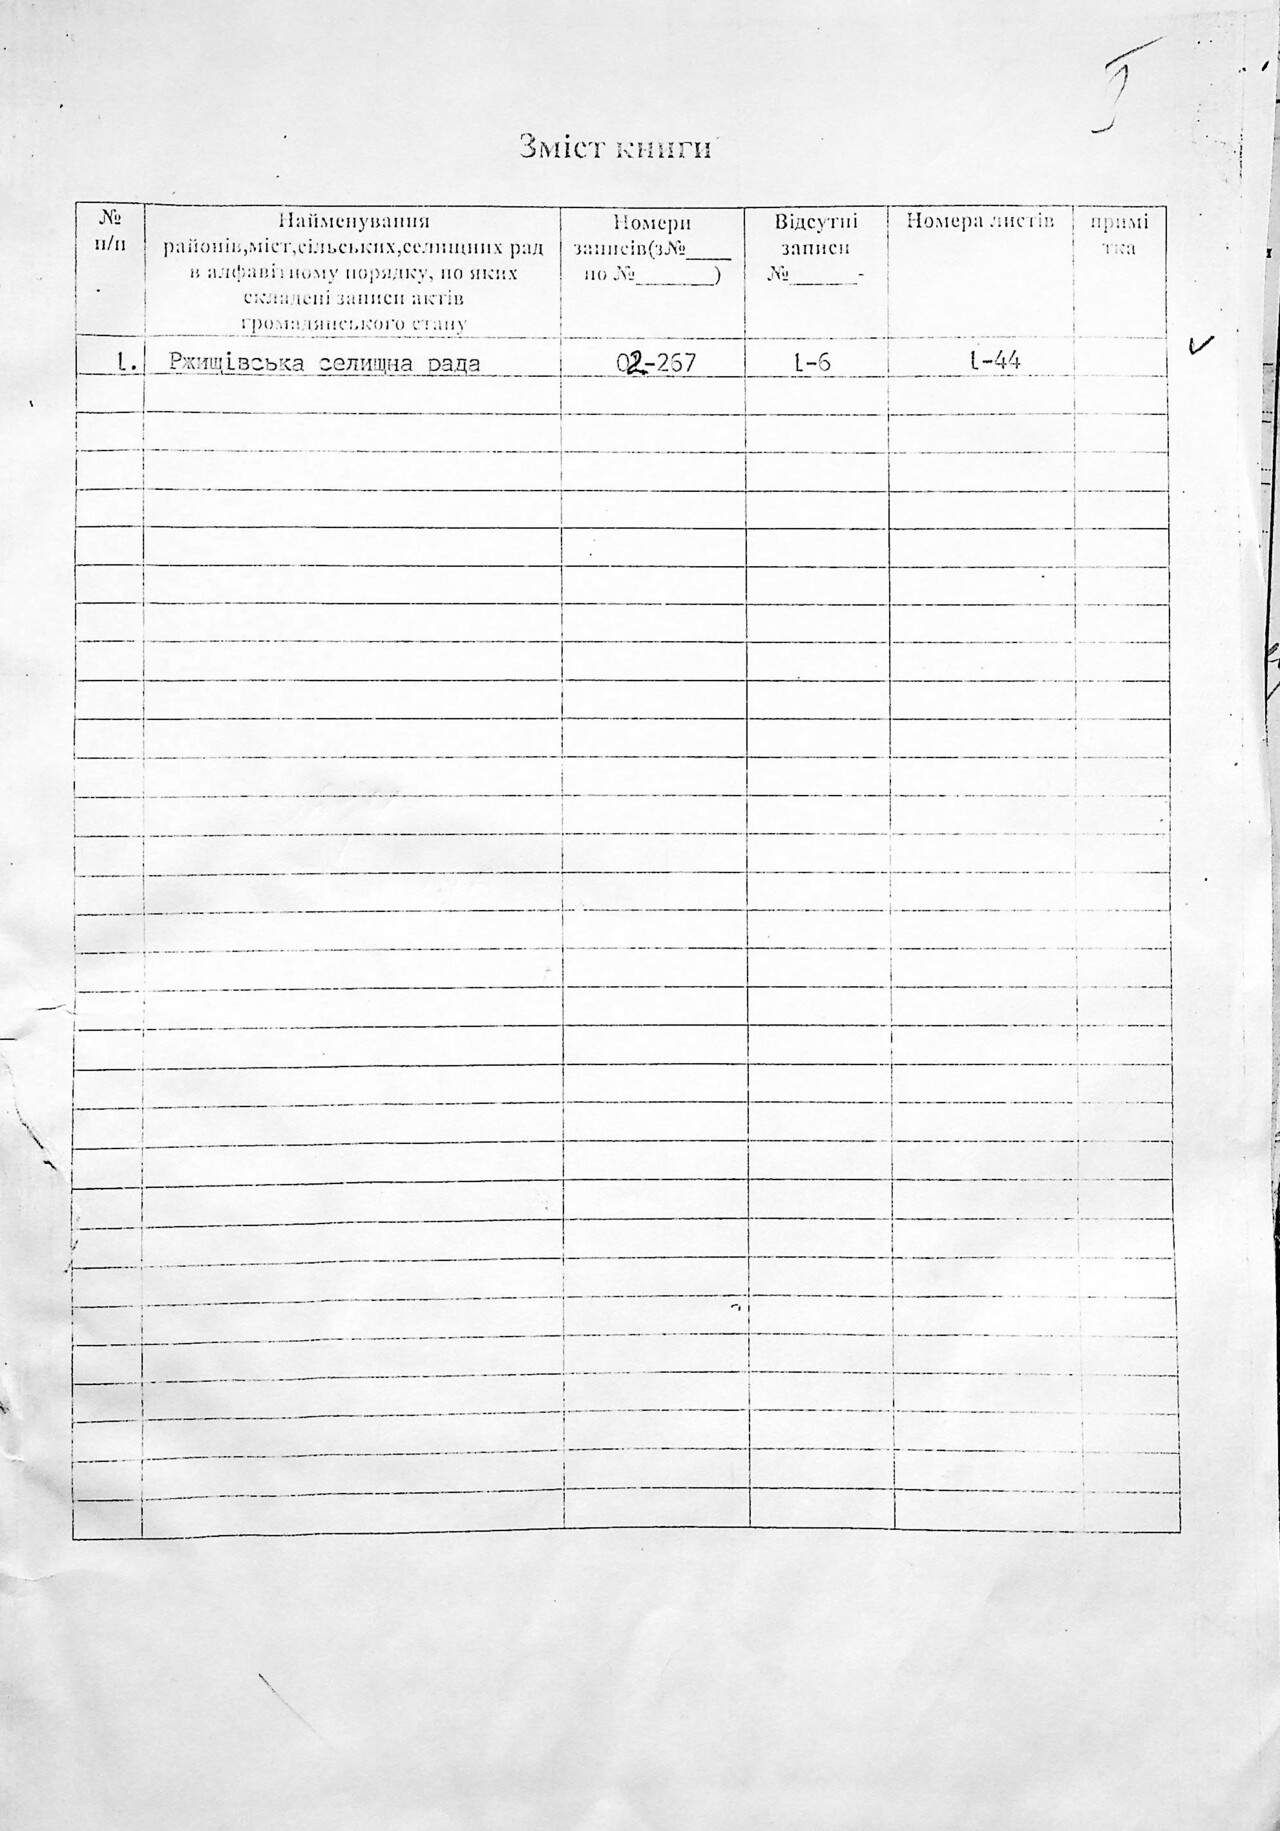 Зміст книги
№ п/п
Найменування
районів,міст,сільських,селищних рад
в алфавітному порядку, по яких
складені записи актів
громадянського стану
Номери
записів(з№____
по №_______)
Відсутні
записи
№______-
Номера листів
примі
тка
1. Ржищівська селищна рада 02-267 1-6 1-44